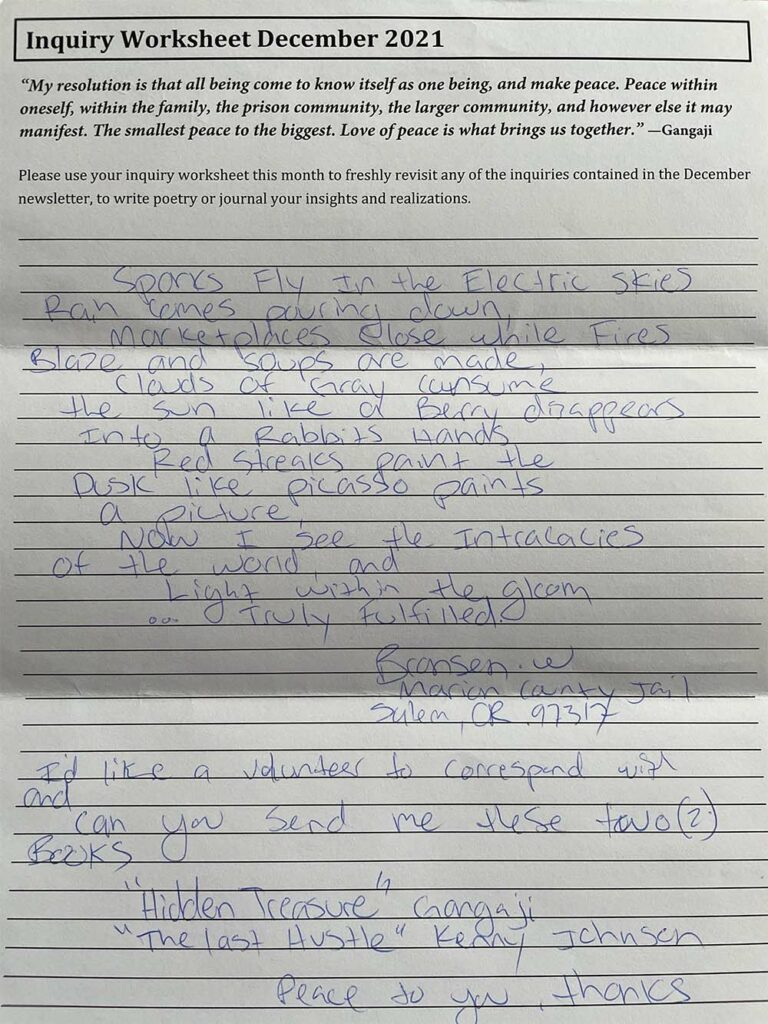 Inquiry Worksheet December 2021
“My resolution is that all being come to know itself as one being, and make peace. Peace within
oneself, within the family, the prison community, the larger community, and however else it may
manifest. The smallest peace to the biggest. Love of peace is what brings us together.” —Gangaji
Please use your inquiry worksheet this month to freshly revisit any of the inquiries contained in the December
newsletter, to write poetry or journal your insights and realizations.
Sparks Fly In the Electric Skies
Rain comes pouring down,
Marketplaces Close while Fires
Blaze and soups are made,
Clouds of Gray consume
the sun like a Berry disappears
Into a Rabbits Hands
Red streaks paint the
Dusk like picasso paints
a picture,
Now I see the Intracacies
of the world, and
Light within the gloom
... Truly Fulfilled.
Bronsen. W
Marion County Jail
Salem, OR 97317
I'd like a volunteer to correspond with
and
can you send me these two (2)
Books
"Hidden Treasure" Gangaji
"The last Hustle" Kenny Johnson
Peace to you, thanks